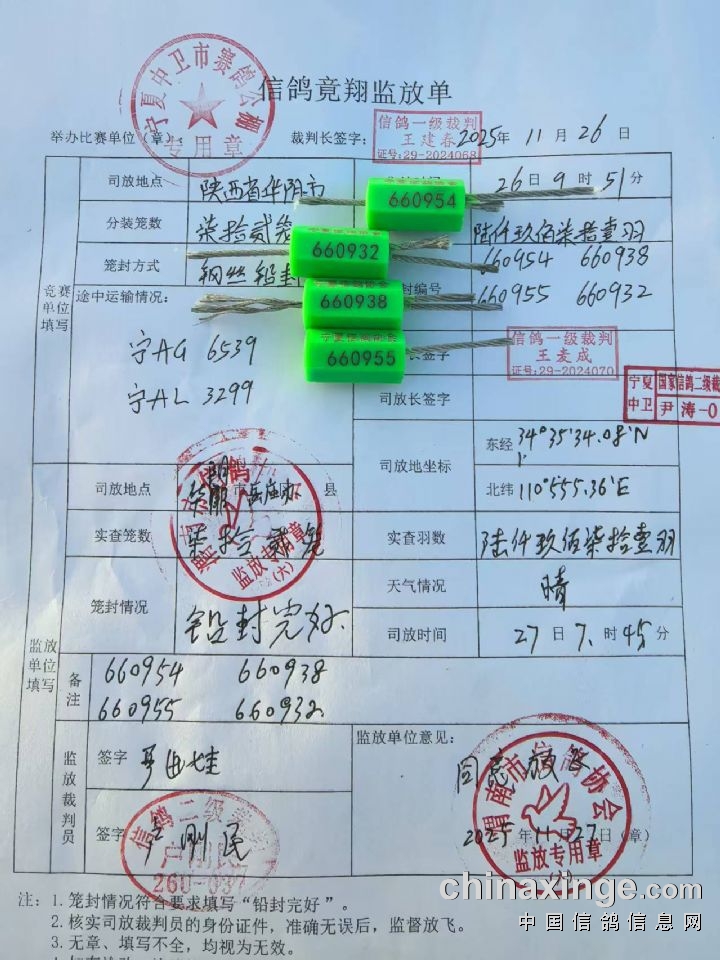 信鸽竞翔监放单
宁夏中卫市赛鸽公棚
专用章
举办比赛单位（章）
裁判长签字：
信鸽一级裁判
王建春
证号:29-2024068
2025年 11月26日
司放地点
陕西省华阴市
26日9时51分
660954
分装笼数
柒拾贰笼
陆仟玖佰柒拾壹羽
660932
笼封方式
钢丝铅封
封编号
660954 660938
660955 660932
660938
宁夏信鸽协会
660955
竞赛
单位
填写
途中运输情况：
宁AG 6539
宁AL 3299
信鸽一级裁判
王麦成
证号:29-2024070
宁夏
中卫
国家信鸽二级裁
尹涛-0
司放长签字
司放地坐标
东经
34°35'34.08"N
北纬
110°555.36"E
司放地点
市
县
监放专用章
(六)
实查笼数
柒拾贰笼
实查羽数
陆仟玖佰柒拾壹羽
笼封情况
铅封完好
天气情况
晴
司放时间
27日7时45分
监放
单位
填写
备注
660954 660938
660955 660932
监放裁判员
签字
签字
信鸽二级裁
260-037
监放单位意见：
同意放飞
渭南市信鸽协会
监放专用章
2025年11月27日（章）
注：1. 笼封情况符合要求填写“铅封完好”。
2. 核实司放裁判员的身份证件，准确无误后，监督放飞。
3. 无章、填写不全，均视为无效。
chinaxinge.com
中国信鸽信息网